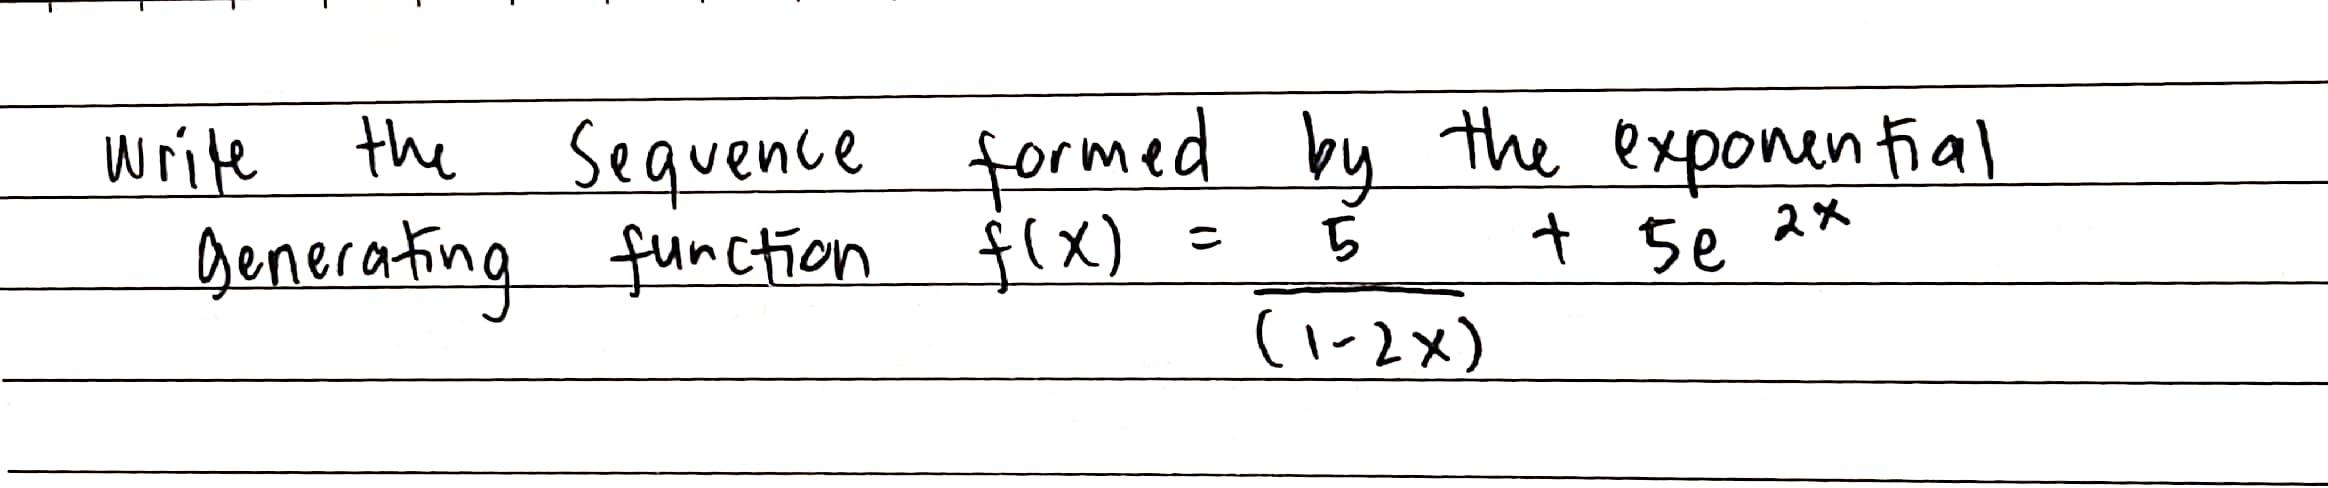 Write the Sequence formed by the exponential
generating function f(x) = 5/(1-2x) + 5e^2x